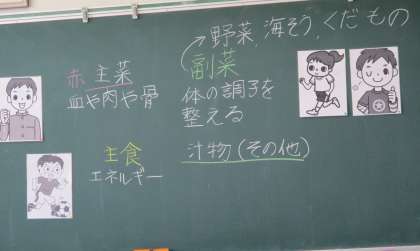 赤 主菜
血や肉や骨
野菜、海そう、くだもの
副菜
体の調子を
整える
主食
エネルギー
汁物(その他)